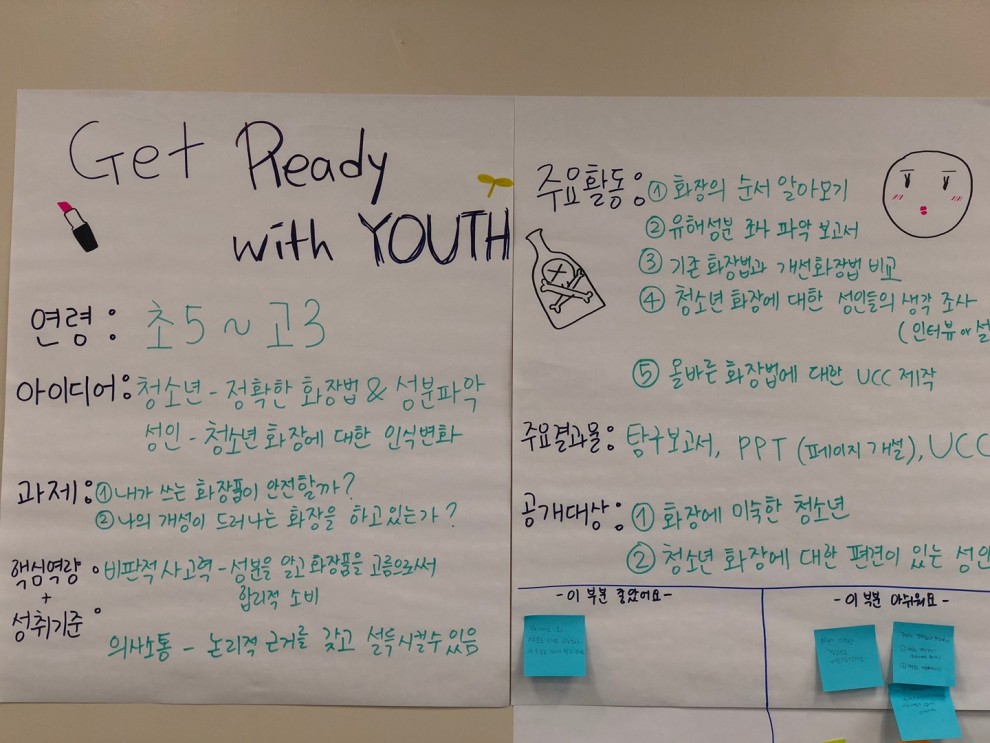 Get Ready
with YOUTH
연령: 초5 ~ 고3
아이디어: 청소년 - 정확한 화장법 & 성분파악
성인 - 청소년 화장에 대한 인식변화
과제: ① 내가 쓰는 화장품이 안전할까?
② 나의 개성이 드러나는 화장을 하고 있는가?
핵심역량 + 성취기준: 비판적 사고력 - 성분을 알고 화장품을 고름으로써
합리적 소비
의사소통 - 논리적 근거를 갖고 설득시킬수 있음
주요활동: ① 화장의 순서 알아보기
② 유해성분 조사 파악 보고서
③ 기존 화장법과 개선화장법 비교
④ 청소년 화장에 대한 성인들의 생각 조사
(인터뷰 or 설
⑤ 올바른 화장법에 대한 UCC 제작
주요결과물: 탐구보고서, PPT (페이지 개설), UCC
공개대상: ① 화장에 미숙한 청소년
② 청소년 화장에 대한 편견이 있는 성인
- 이 부분 좋았어요 -
- 이 부분 아쉬워요 -